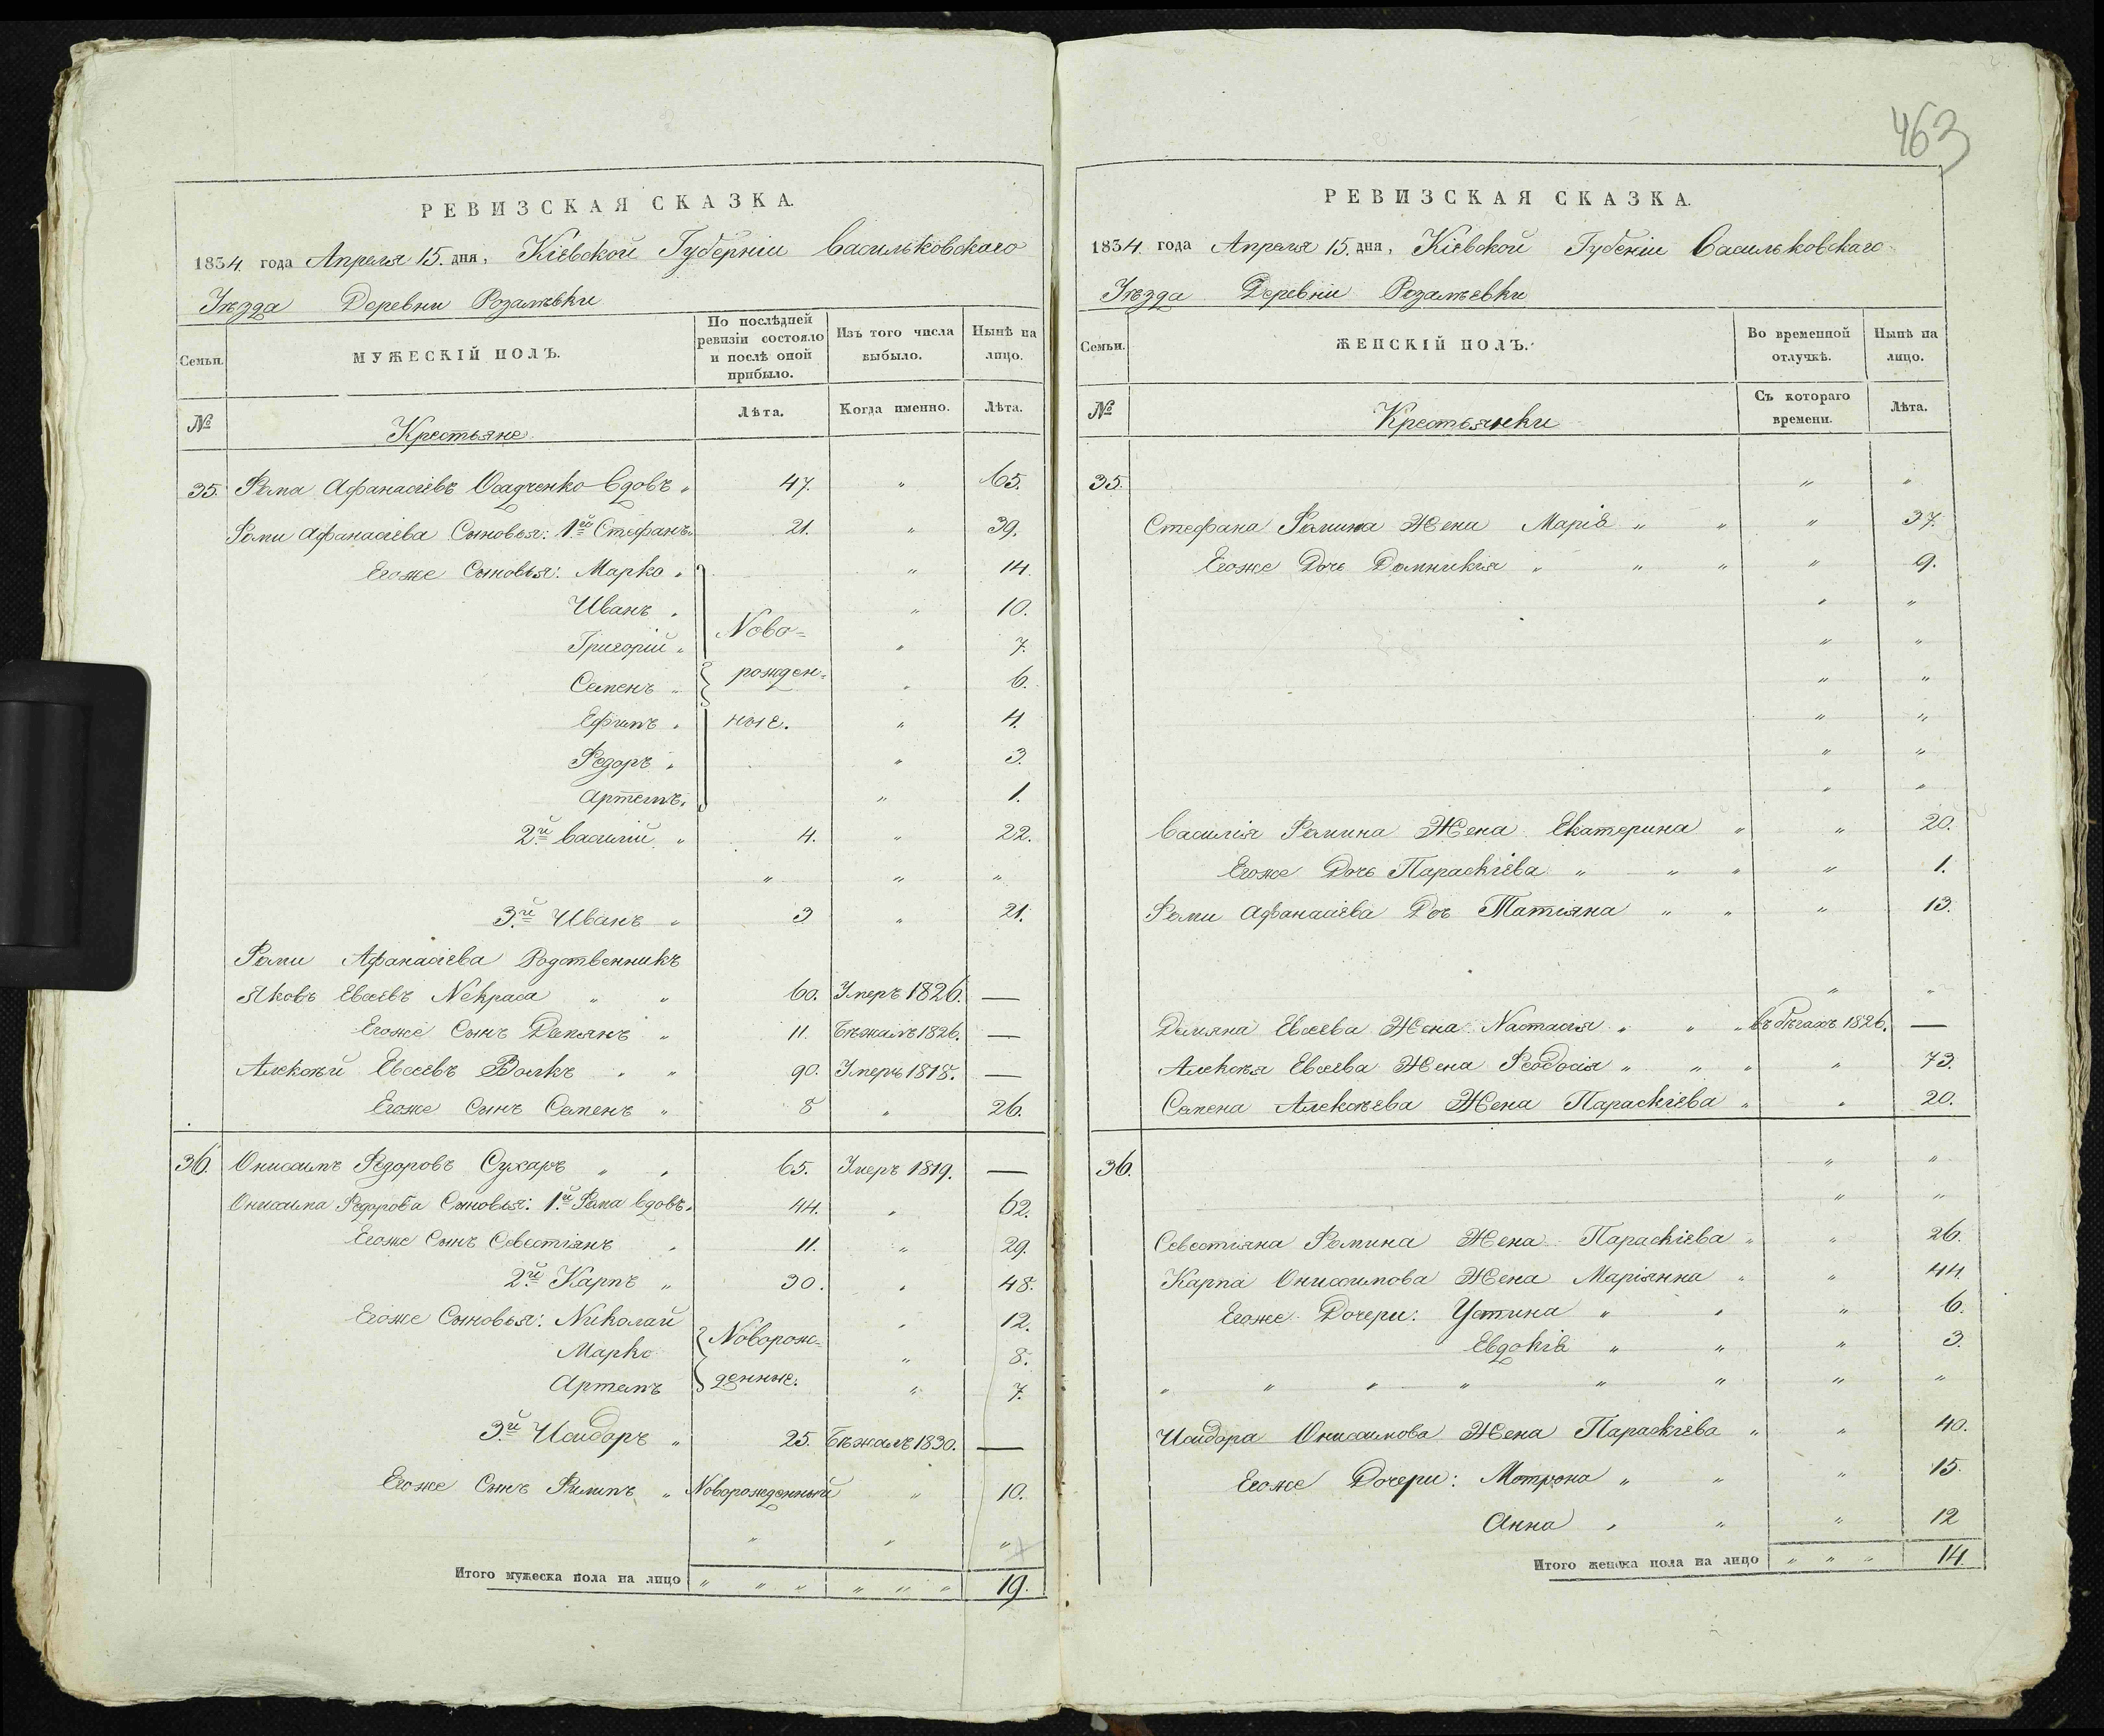 463
РЕВИЗСКАЯ СКАЗКА.
1834. года Апреля 15. дня, Кіевской Губерніи Васильковскаго
Уѣзда Деревни Розалѣвки
Семьи.
МУЖЕСКІЙ ПОЛЪ.
По послѣдней ревизіи состояло и послѣ оной прибыло.
Изъ того числа выбыло.
Нынѣ на лицо.
№ Крестьяне Лѣта. Когда именно. Лѣта.
35. Фома Афанасіевъ Осадченко Вдовъ „ 47. „ 65.
Фомы Афанасіева Сыновья: 1й Стефанъ „ 21. „ 39.
Егоже Сыновья: Марко „ „ 14.
Иванъ „ „ 10.
Григорій „ Ново= „ 7.
Семенъ „ рожден= „ 6.
Ефимъ „ ные. „ 4.
Федоръ „ „ 3.
Артемъ „ „ 1.
2й Василій „ 4. „ 22.
„ „ „
3й Иванъ „ 3 „ 21.
Фомы Афанасіева Родственникъ
Яковъ Евсеевъ Некраса „ „ 60. Умеръ 1826. —
Егоже Сынъ Демянъ „ 11. Бѣжалъ 1826. —
Алексѣй Евсеевъ Волкъ „ „ 90. Умеръ 1818. —
Егоже Сынъ Семенъ „ 8 „ 26.
36. Онисимъ Федоровъ Сухаръ „ „ 65. Умеръ 1819. —
Онисима Федорова Сыновья: 1й Фома Вдовъ „ 44. „ 62.
Егоже Сынъ Севестіянъ „ 11. „ 29.
2й Карпъ „ 30. „ 48.
Егоже Сыновья: Николай „ 12.
Марко Новорож= „ 8.
Артемъ денные. „ 7.
3й Исидоръ „ 25. Бѣжалъ 1830. —
Егоже Сынъ Филипъ „ Новорожденный „ 10.
„ „ „
Итого мужеска пола на лицо „ „ „ „ „ „ 19.
РЕВИЗСКАЯ СКАЗКА.
1834. года Апреля 15. дня, Кіевской Губеніи Васильковскаго
Уѣзда Деревни Розалѣевки
Семьи.
ЖЕНСКІЙ ПОЛЪ.
Во временной отлучкѣ.
Нынѣ на лицо.
№ Крестьянки Съ котораго времени. Лѣта.
35. „ „
Стефана Фомина Жена Марія „ „ „ 37.
Егоже Дочь Домникія „ „ „ „ 9.
„ „
„ „
„ „
„ „
„ „
„ „
Василія Фомина Жена Екатерина „ „ 20.
Егоже Дочь Параскіева „ „ „ „ 1.
Фомы Афанасіева Доч Татіяна „ „ „ 13.
„ „
Демяна Евсеева Жена Настасія „ „ „ въ бѣгахъ 1826. —
Алексѣя Евсеева Жена Феодосія „ „ „ „ 73.
Семена Алексѣева Жена Параскіева „ „ 20.
36. „ „
„ „
Севестіяна Фомина Жена Параскіева „ „ 26.
Карпа Онисимова Жена Маріянна „ „ 44.
Егоже Дочери: Устина „ „ „ 6.
Евдокія „ „ „ 3.
„ „ „ „ „ „ „ „
Исидора Онисимова Жена Параскіева „ „ 40.
Егоже Дочери: Мотрона „ „ „ 15.
Анна „ „ „ 12
Итого женска пола на лицо „ „ „ 14.